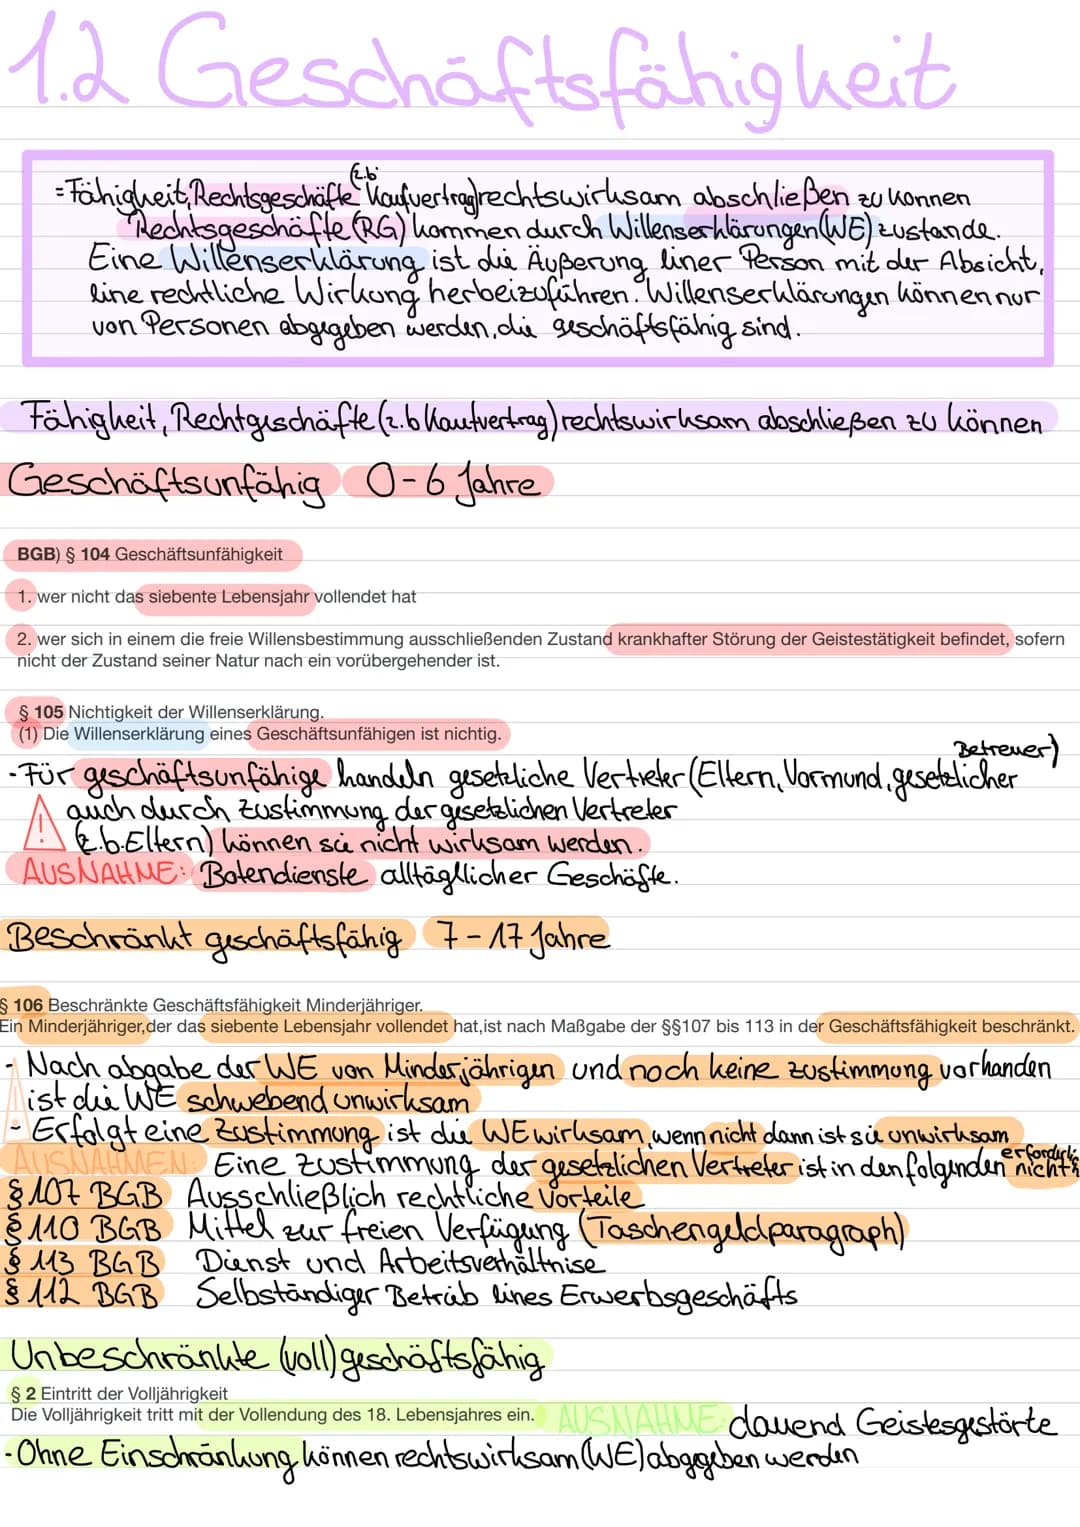 1.2 Geschäftsfähigkeit
(z.b
=Fähigkeit, Rechtsgeschäfte Kaufvertrag) rechtswirksam abschließen zu können
Rechtsgeschäfte (RG) kommen durch Willenserklärungen (WE) zustande.
Eine Willenserklärung ist die Äußerung einer Person mit der Absicht,
eine rechtliche Wirkung herbeizuführen. Willenserklärungen können nur
von Personen abgegeben werden, die geschäftsfähig sind.
Fähigkeit, Rechtgeschäfte (z.b Kaufvertrag) rechtswirksam abschließen zu können
Geschäftsunfähig 0-6 Jahre
BGB) § 104 Geschäftsunfähigkeit
1. wer nicht das siebente Lebensjahr vollendet hat
2. wer sich in einem die freie Willensbestimmung ausschließenden Zustand krankhafter Störung der Geistestätigkeit befindet, sofern
nicht der Zustand seiner Natur nach ein vorübergehender ist.
§ 105 Nichtigkeit der Willenserklärung.
(1) Die Willenserklärung eines Geschäftsunfähigen ist nichtig.
Betreuer)
-Für geschäftsunfähige handeln gesetzliche Vertreter (Eltern, Vormund, gesetzlicher
! auch durch zustimmung der gesetzlichen Vertreter
(z.b. Eltern) können sie nicht wirksam werden.
AUSNAHME: Botendienste alltägllicher Geschäfte.
Beschränkt geschäftsfähig 7-17 Jahre
§ 106 Beschränkte Geschäftsfähigkeit Minderjähriger.
Ein Minderjähriger,der das siebente Lebensjahr vollendet hat,ist nach Maßgabe der §§107 bis 113 in der Geschäftsfähigkeit beschränkt.
- Nach abgabe der WE von Minderjährigen und noch keine zustimmung vorhanden
ist die WE schwebend unwirksam
- Erfolgt eine zustimmung ist die WE wirksam, wenn nicht dann ist sie unwirksam
AUSNAHMEN: Eine zustimmung der gesetzlichen Vertreter ist in den folgenden nicht
erforderl.
§ 107 BGB Ausschließlich rechtliche Vorteile
§ 110 BGB Mittel zur freien Verfügung (Taschengeldparagraph)
§ 113 BGB Dienst und Arbeitsverhältnise
§ 112 BGB Selbständiger Betrieb eines Erwerbsgeschäfts
Unbeschränkte (voll) geschäftsfähig
§ 2 Eintritt der Volljährigkeit
Die Volljährigkeit tritt mit der Vollendung des 18. Lebensjahres ein. AUSNAHME: dauend Geistesgestörte
-Ohne Einschränkung können rechtswirksam (WE) abgegeben werden